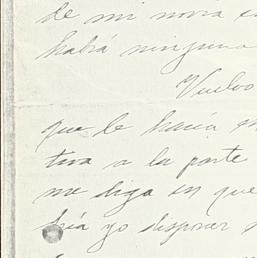 de mi novia
habrá ninguna
Vuelvo
que le hacía
tiva a la parte
me diga en que
dría yo disponer